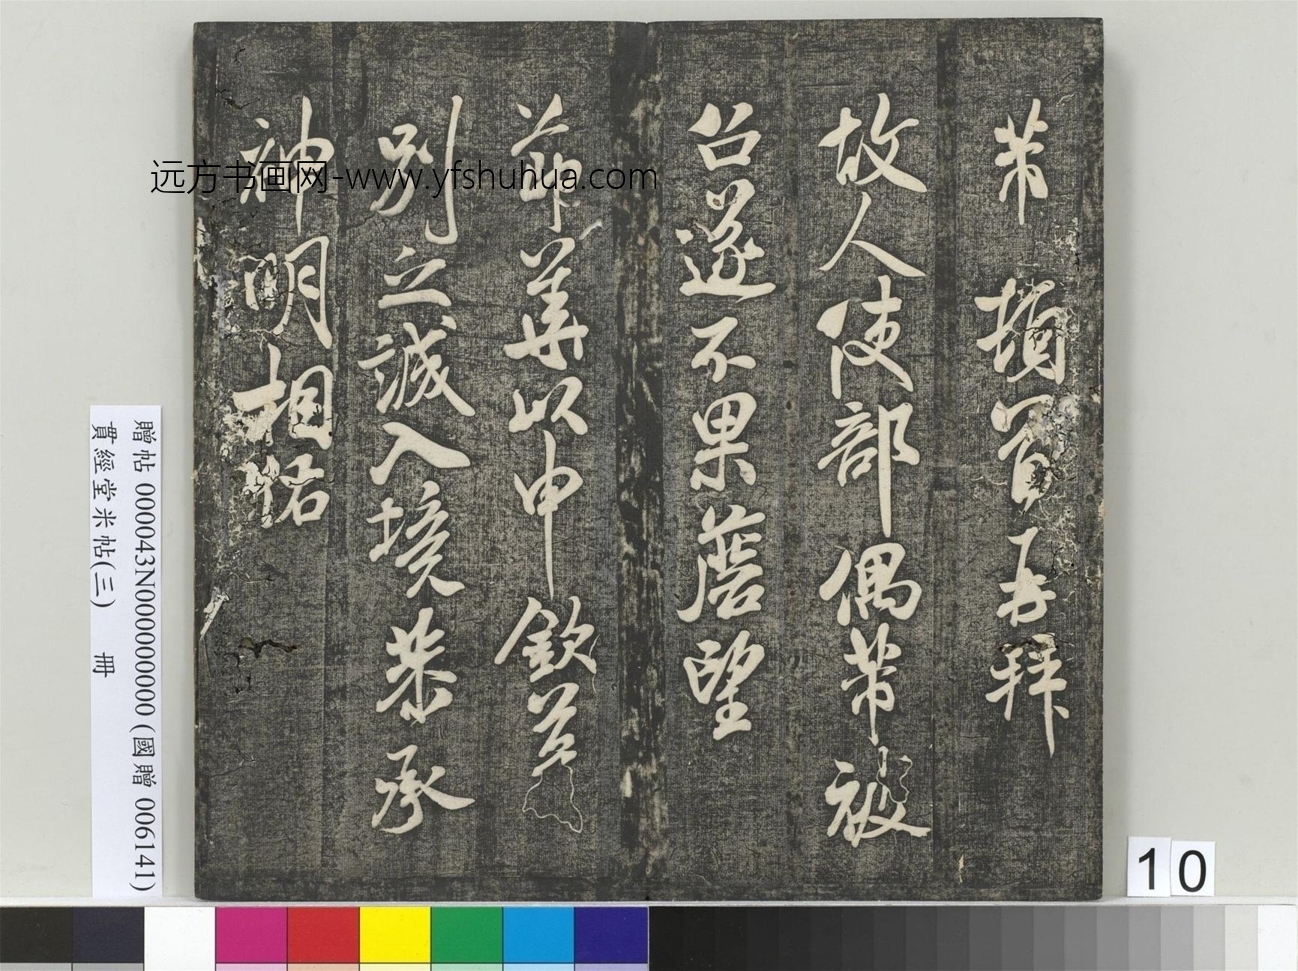 芾 頓首再拜
故人使部偶芾被
召遂不果磨望
節華以申欽
別之誠入境恭承
神明相祐
远方书画网-www.yfshuhua.com
贈帖 000043N000000000 (國贈 006141)
貫經堂米帖(三) 冊
10